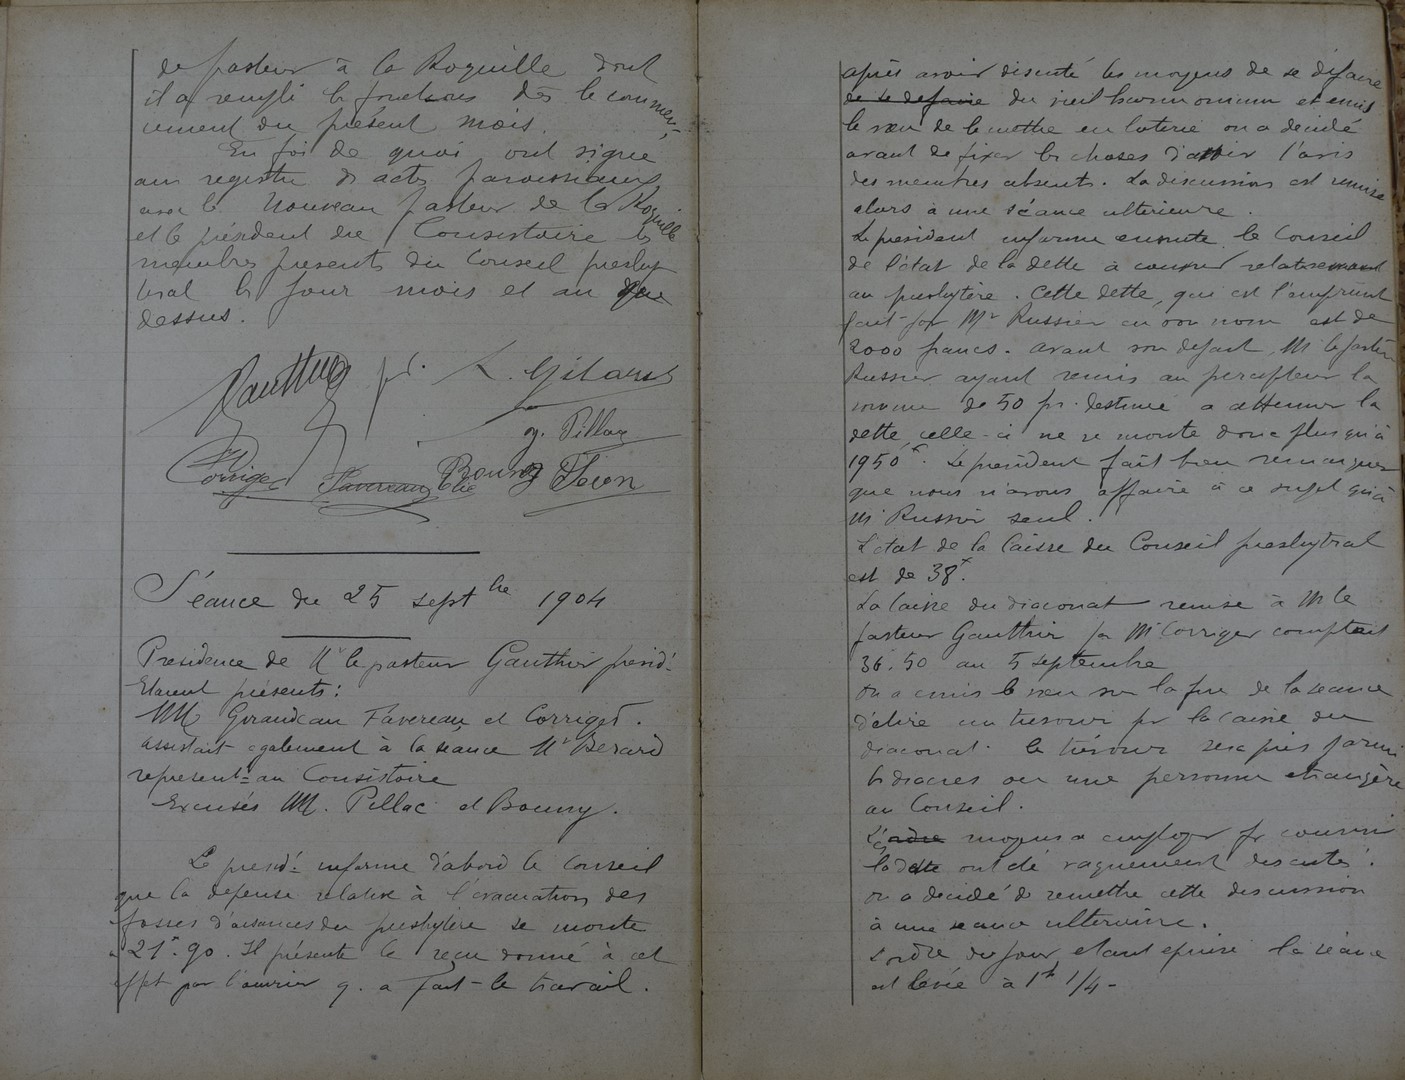 de pasteur à la Roquille dont
il a rempli les fonctions dès le commen-
cement du présent mois.
En foi de quoi ont signé
au registre des actes paroissiaux
avec le Nouveau pasteur de la Roquille
et le président du Consistoire les
membres présents du Conseil presby
téral les jour mois et an que
dessus.
Gauthier pst. L. Gilard
g. Pillac
Corriger Favereau Elie Bouny
Séance du 25 septbre 1904
Presidence de Mr le pasteur Gauthier présid.
Etaient présents:
MM Geraudeau Favereau et Corriger.
assistait également à la séance Mr Berard
represent. au Consistoire
Excusés MM. Pillac et Bouny.
Le présid. informe d'abord le Conseil
que la dépense relative à l'évacuation des
fosses d'aisances du presbytère se monte
à 21f.90. Il présente le reçu donné à cet
effet par l'ouvrier q. a fait le travail.
après avoir discuté les moyens de se défaire
de se defaire du vieil harmonium et émis
le vœu de le mettre en loterie on a décidé
avant de fixer les choses d'avoir l'avis
des membres absents. La discussion est remise
alors à une séance ultérieure.
Le président informe ensuite le Conseil
de l'état de la dette à couvrir relativement
au presbytère. Cette dette, qui est l'emprunt
fait par Mr Russier en son nom est de
2000 francs. avant son départ, M le pasteur
Russier ayant remis au percepteur la
somme de 50 fr. destinée a atténuer la
dette, celle-ci ne se monte donc plus qu'à
1950f. Le président fait bien remarquer
que nous n'avons affaire à ce sujet qu'à
Mr Russier seul.
L'état de la Caisse du Conseil presbytéral
est de 38f.
La Caisse du diaconat remise à M le
pasteur Gauthier par Mr Corriger comptait
36.50 au 5 septembre
On a émis le vœu sur la fin de la séance
d'élire un trésorier pr la caisse du
diaconat. Le trésorier sera pris parmi
les diacres ou une personne étrangère
au Conseil.
Les ordre moyens a employer pr couvrir
la dette ont été vaguement discutés.
On a décidé de remettre cette discussion
à une séance ultérieure.
L'ordre du jour étant épuisé la séance
est levée à 1h 1/4-